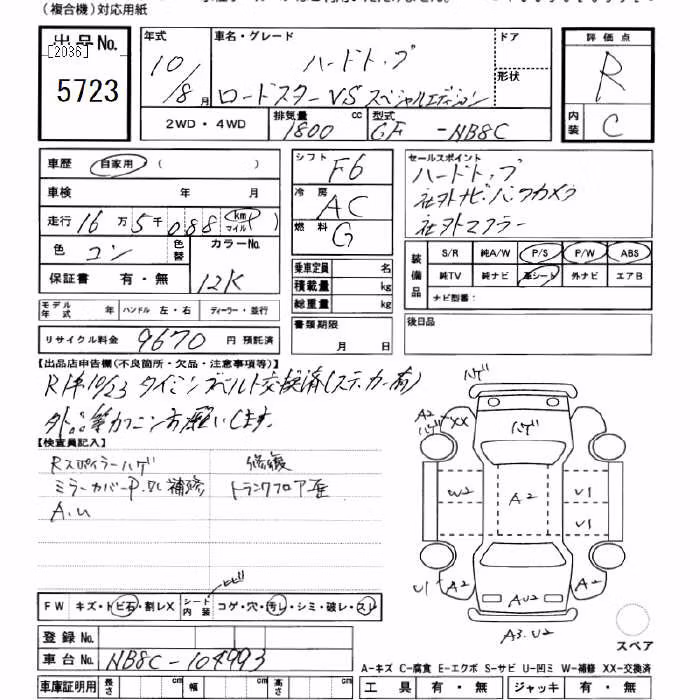 (複合機)対応用紙
出品No.
[2036]
5723
年式 10/8月
車名・グレード ハードトップ
ロードスターVS スペシャルエディション
ドア
形状
2WD・4WD
排気量 1800 cc
型式 GF - NB8C
評価点 R
内装 C
車歴 自家用 ( )
車検 年 月
走行 16万5千088 km マイル )
色 コン 色替 カラーNo. 12K
保証書 有・無
モデル年式 年 ハンドル 左・右 ディーラー・並行
リサイクル料金 9670 円 預託済
シフト F6
冷房 AC
燃料 G
乗車定員 名
積載量 kg
総重量 kg
書類期限
月 日
セールスポイント
ハードトップ
社外ナビ・バックカメラ
社外マフラー
装備品
S/R 純A/W P/S P/W ABS
純TV 純ナビ 革シート 外ナビ エアB
ナビ型番:
後日品
【出品店申告欄(不良箇所・欠品・注意事項等)】
R1年10/23 タイミングベルト交換済(ステッカー有)
外品等カクニン方願いします。
【検査員記入】
Rスポイラーハゲ 修復
ミラーカバーP.DL補修 トランクフロア歪
A.U
ハゲ
ハゲ
A2
ハゲ
XX
W2
A2
U1
U1
U1
A2
AU2
A2
A3.U2
スペア
FW キズ・トビ石・割レX シート内装 コゲ・穴・汚レ・シミ・破レ・スレ
登録No.
車台No. NB8C-104993
A-キズ C-腐食 E-エクボ S-サビ U-凹ミ W-補修 XX-交換済
車庫証明用 長さ cm 幅 cm 高さ cm
工具 有・無 ジャッキ 有・無